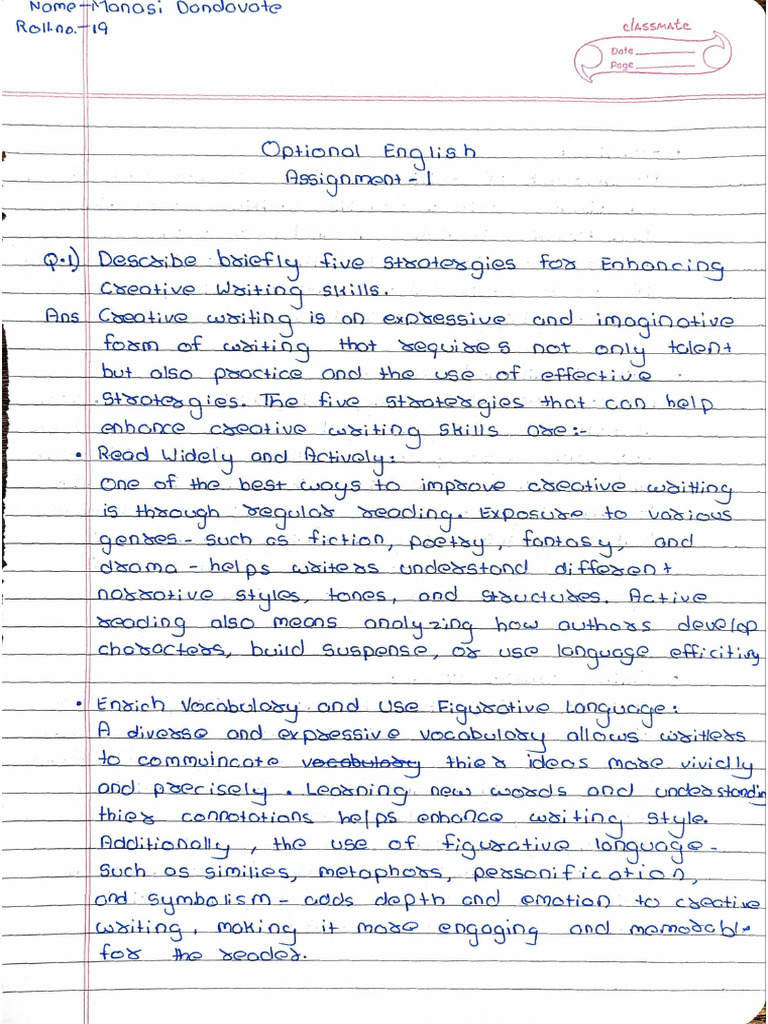 Name - Manasi Dandavate
Roll.no. - 19
classmate
Date
Page
Optional English
Assignment - 1
Q.1) Describe briefly five stratergies for Enhancing
Creative Writing skills.
Ans Creative writing is an expressive and imaginative
form of writing that requires not only talent
but also practice and the use of effective
stratergies. The five stratergies that can help
enhance creative writing skills are:-
• Read Widely and Actively:
One of the best ways to improve creative writting
is through regular reading. Exposure to various
genres - such as fiction, poetry, fantasy, and
drama - helps writers understand different
narrative styles, tones, and structures. Active
reading also means analyzing how authors develop
characters, build suspense, or use language efficitivly
• Enrich Vocabulary and Use Figurative Language:
A diverse and expressive vocabulary allows writters
to commuincate vocabulary thier ideas more vividly
and precisely. Learning new words and understandin
thier connotations helps enhance writing style.
Additionally, the use of figurative language -
such as similies, metaphors, personification,
and symbolism - adds depth and emotion to creative
writing, making it more engaging and memorable
for the reader.